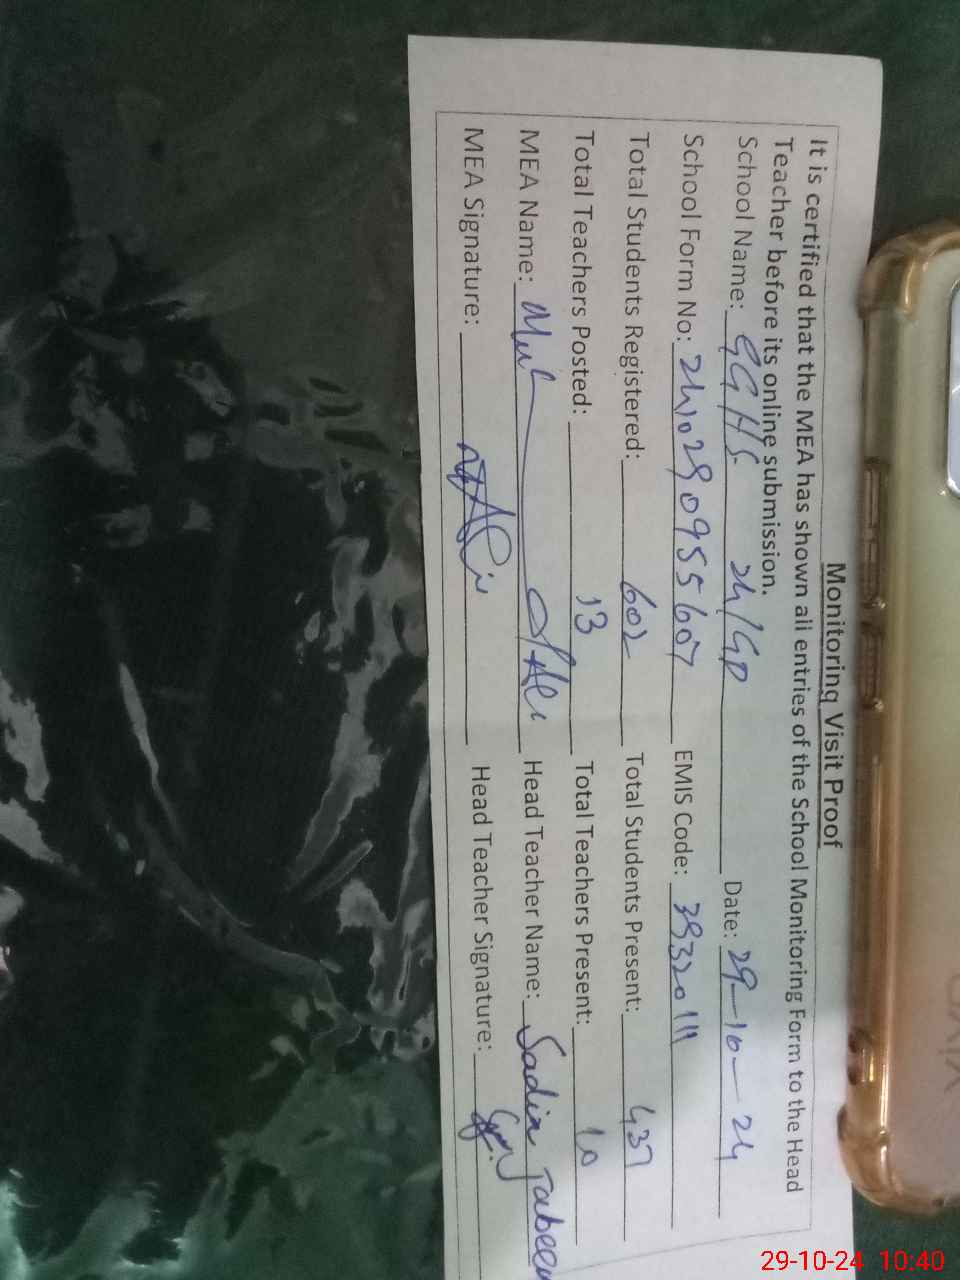 Monitoring Visit Proof
It is certified that the MEA has shown all entries of the School Monitoring Form to the Head
Teacher before its online submission.
School Name: GGHS 24/GD Date: 29-10-24
School Form No: 2410290955607 EMIS Code: 39320111
Total Students Registered: 602 Total Students Present: 437
Total Teachers Posted: 13 Total Teachers Present: 10
MEA Name: Ali Head Teacher Name: Sadia Jabeen
MEA Signature: Head Teacher Signature:
29-10-24 10:40